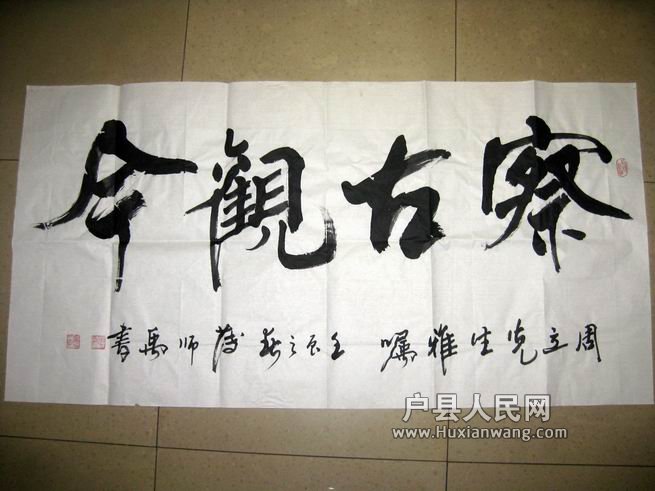 察古觀今
周立先生雅嘱 壬辰之春 薄师禹书
户县人民网
www.Huxianwang.com